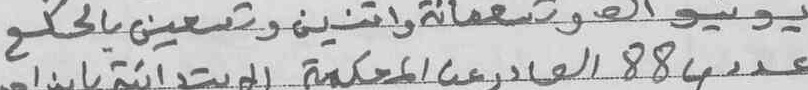 يونيو الف وتسعمائة واثنين وتسعين بالحكم
عدد 88 الصادر عن المحكمة الابتدائية